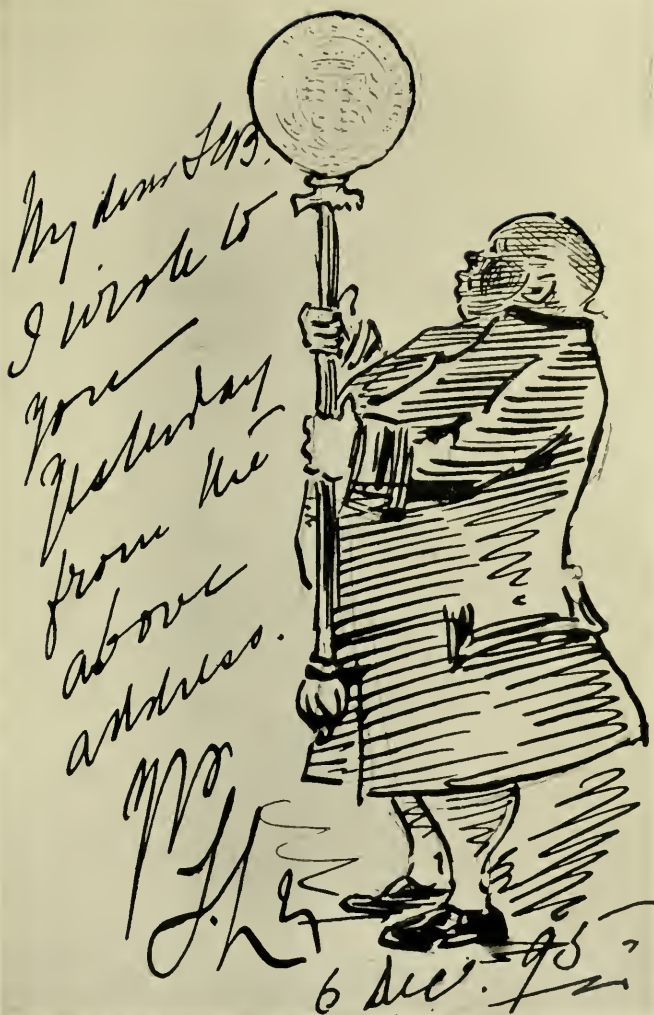 My dear FCB.
I wrote to
you
yesterday
from the
above
address.
Yrs
F.L.
6 Dec. 95